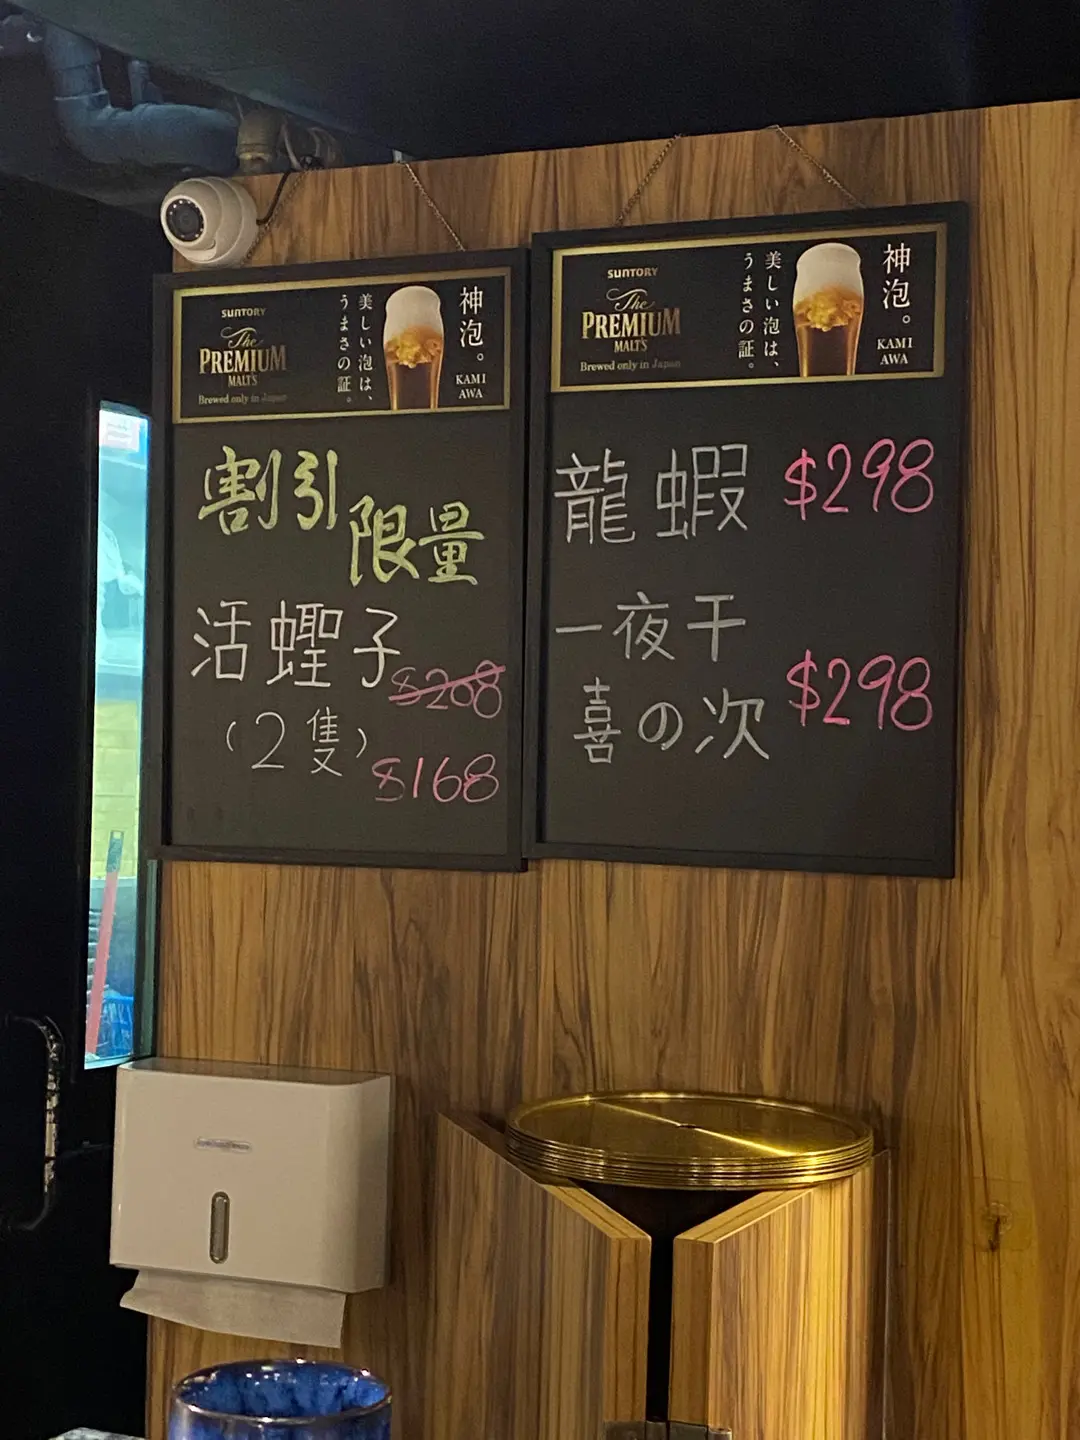 SUNTORY
The
PREMIUM
MALT'S
Brewed only in Japan
美しい泡は、
うまさの証。
神泡。
KAMI
AWA
割引
限量
活蟶子
$268
(2隻)
$168
SUNTORY
The
PREMIUM
MALT'S
Brewed only in Japan
美しい泡は、
うまさの証。
神泡。
KAMI
AWA
龍蝦 $298
一夜干
喜の次 $298